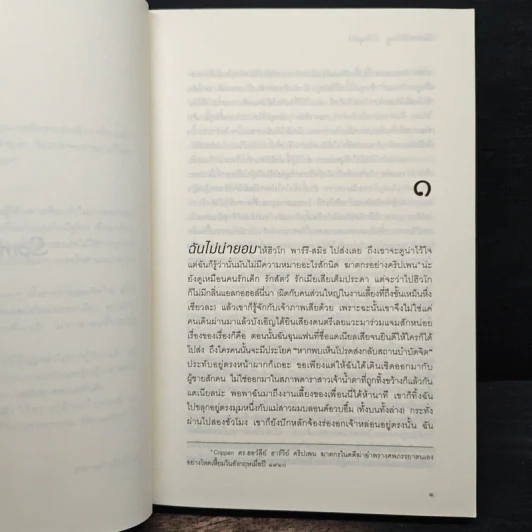 ๑
ฉันไม่น่ายอมให้ฮิวโก พาร์รี-สมิธ ไปส่งเลย ถึงเขาจะดูน่าไว้ใจ
แต่ฉันก็รู้ว่านั่นมันไม่มีความหมายอะไรสักนิด ฆาตกรอย่างคริปเพน* น่ะ
ยังดูเหมือนคนรักเด็ก รักสัตว์ รักเมียเสียเต็มประดา แต่จะว่าไปฮิวโก
ก็ไม่มีกลิ่นแอลกอฮอล์นี่นา (ผิดกับคนส่วนใหญ่ในงานเลี้ยงที่ถึงขั้นเหม็นหึ่ง
เชียวละ) แล้วเขาก็รู้จักกับเจ้าภาพเสียด้วย เพราะฉะนั้นเขาจึงไม่ใช่แค่
คนเดินผ่านมาแล้วบังเอิญได้ยินเสียงดนตรีเลยแวะมาร่วมแจมสักหน่อย
เรื่องของเรื่องก็คือ ตอนนั้นฉันฉุนแฟนที่ชื่อแดเนียลเสียจนยินดีให้ใครก็ได้
ไปส่ง ถึงใครคนนั้นจะมีประโยค "หากพบเห็นโปรดส่งกลับสถานบำบัดจิต"
ประทับอยู่ตรงหน้าผากก็เถอะ ขอเพียงแค่ให้ฉันได้เดินเชิดออกมากับ
ผู้ชายสักคน ไม่ใช่ออกมาในสภาพดาราสาวเจ้าน้ำตาที่ถูกทิ้งขว้างก็แล้วกัน
แดเนียลน่ะ พอพาฉันมาถึงงานเลี้ยงของเพื่อนนี่ได้ห้านาที เขาก็ทิ้งฉัน
ไปขลุกอยู่ตรงมุมหนึ่งกับแม่สาวผมบลอนด์อวบอึ๋ม (ทั้งบนทั้งล่าง) กระทั่ง
ผ่านไปสองชั่วโมง เขาก็ยังปักหลักจ้องร่องอกเจ้าหล่อนอยู่ตรงนั้น ฉัน
* Crippen ดร.ฮอว์ลีย์ ฮาร์วีย์ คริปเพน ฆาตกรในคดีฆ่าชำแหละศพภรรยาตนเอง
อย่างโหดเหี้ยมในอังกฤษเมื่อปี ๑๙๑๐